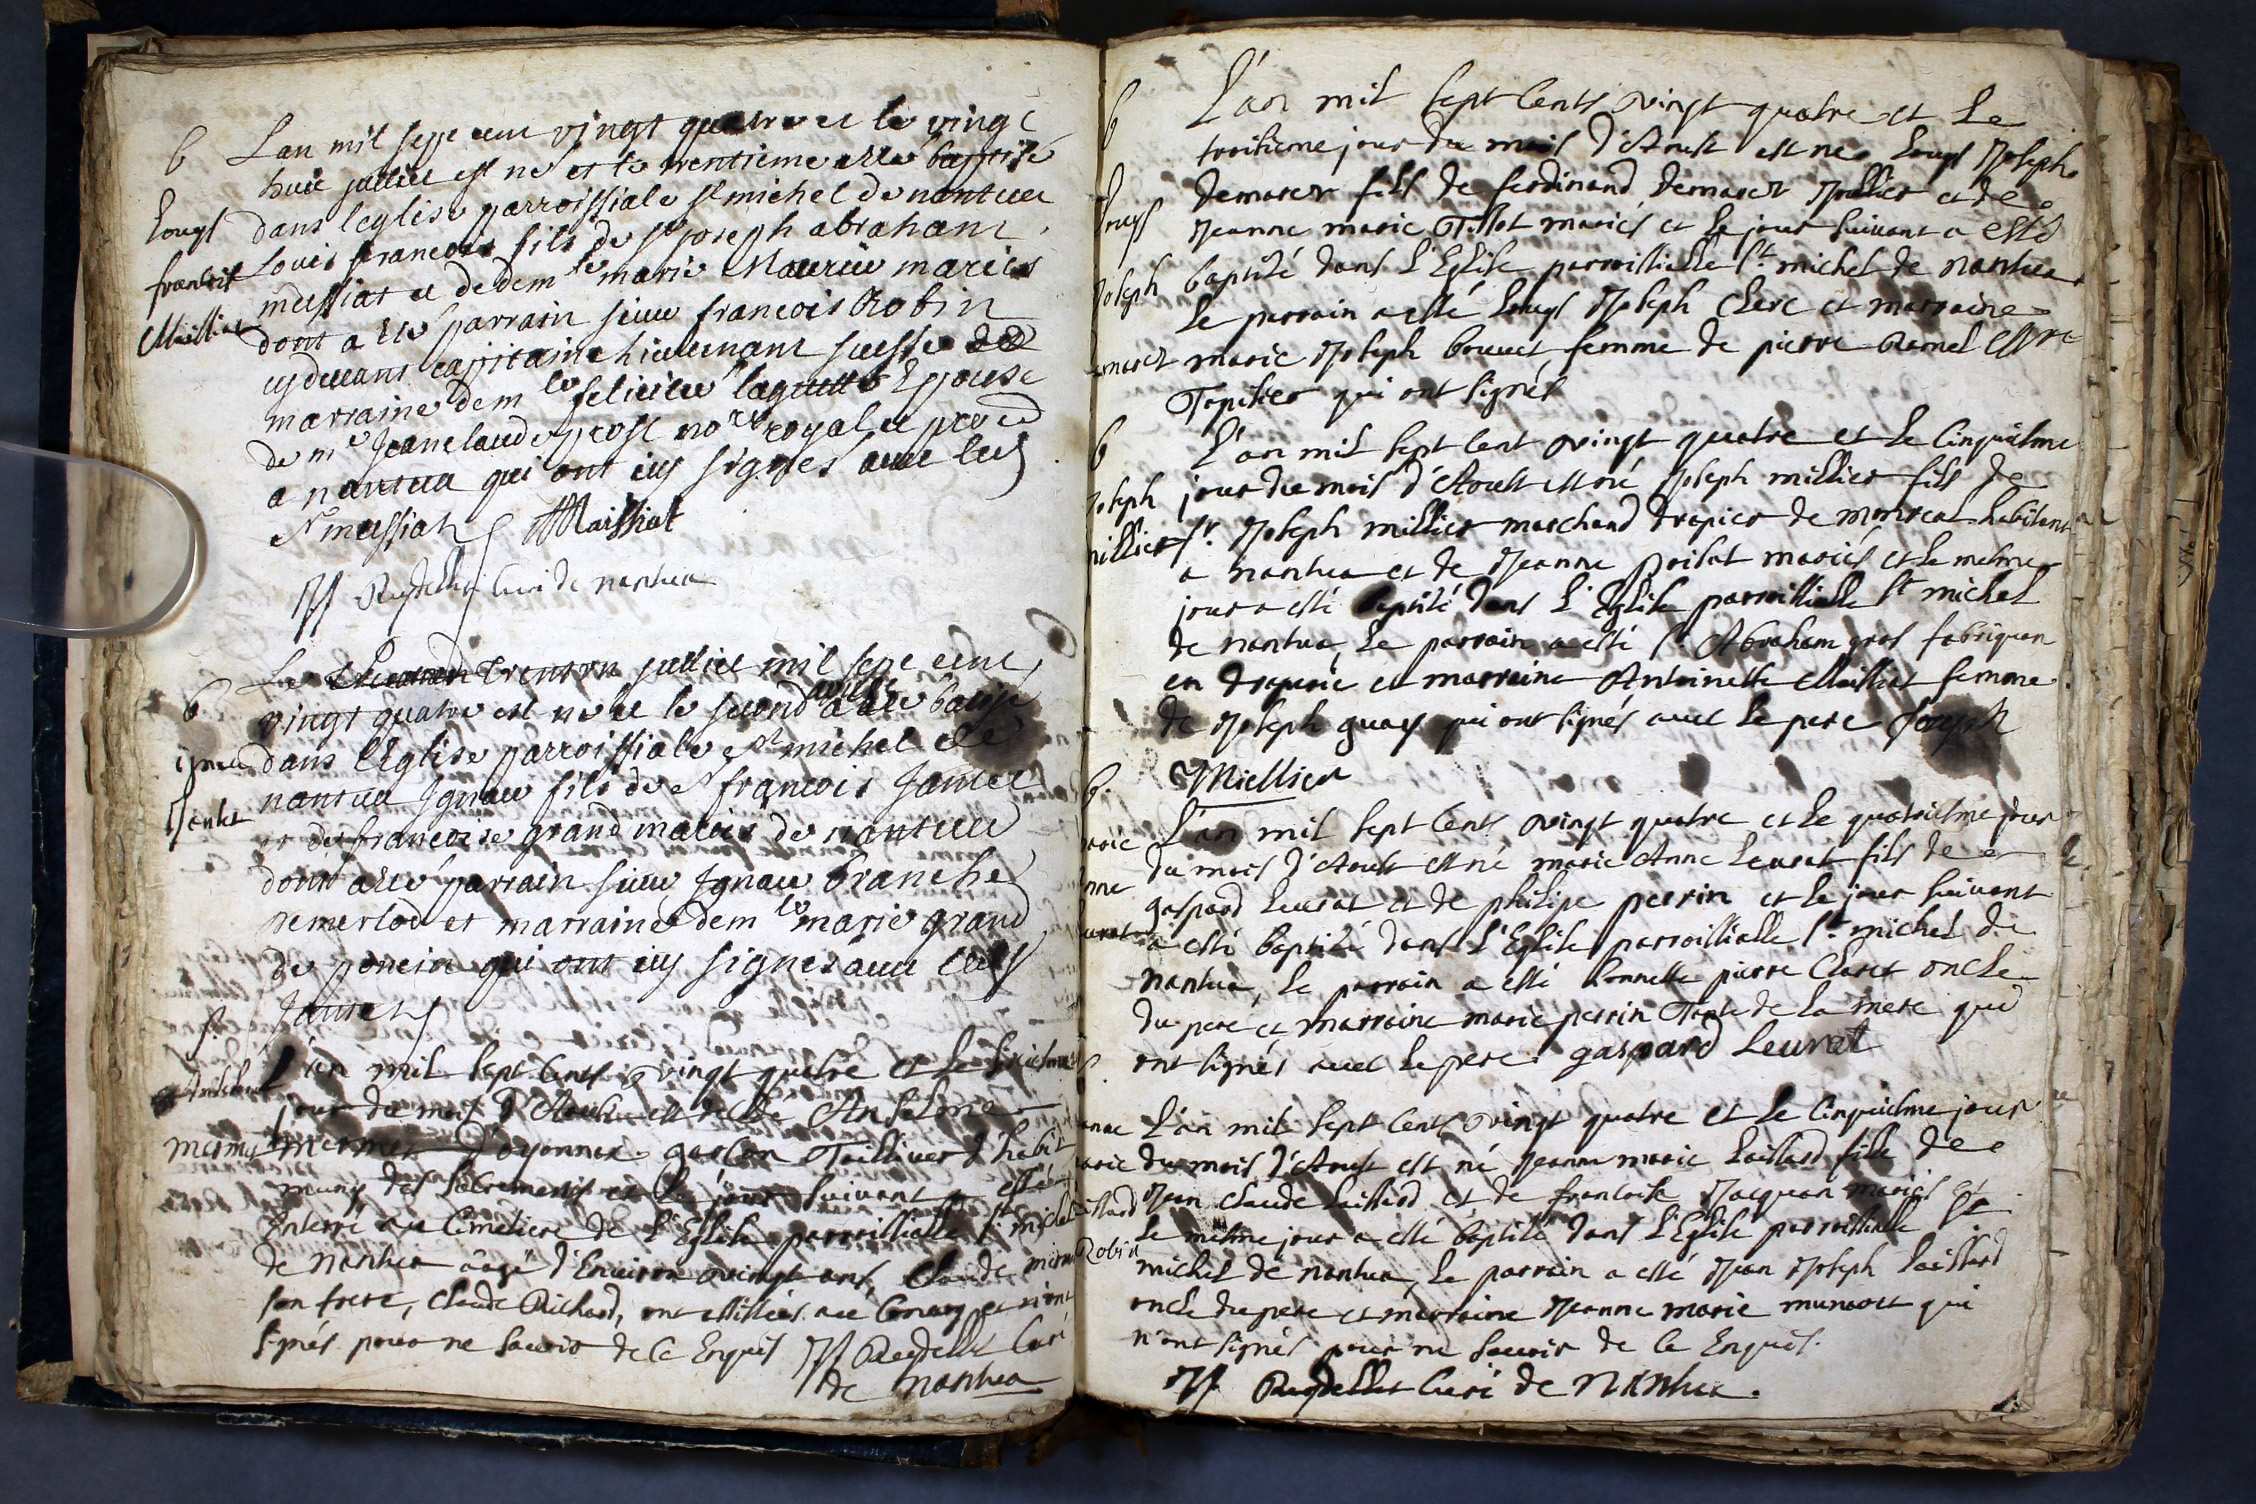 b
Louys
francois
Maissiat
Lan mil sept cent vingt quatre et le vingt
huit juillet est né et le trentieme a été baptisé
dans leglise parroissiale st michel de nantua
Louis francois fils de sr joseph abraham
messiat et de dem lle marie mariés
dont a été parrain sieur francois Robin
cy devant capitaine lieutenant suisse et
marraine dem lle epouse
de me Jean claude prost no re royal et
a nantua qui ont icy signés avec led
sr messiat Maissiat
Curé de nantua
b
ignace
Jantet
Le trente un juillet mil sept cent
vingt quatre est né et le second aoust a été batisé
dans l'Eglise parroissiale st michel de
nantua Ignace fils de sr francois Jantet
et de francoise grand mariés de nantua
dont a été parrain sieur Ignace branche
demerloz et marraine dem lle marie grand
de poncin qui ont icy signés avec led
Jantet
s.
Anthelme
mermet
L'an mil sept cents vingt quatre et le
jour du mois d'Aoust est decede Anthelme
mermet d'oyonnax garson Tailleur d'habit
muny des sacrements et le jour suivant a esté
Enterré au Cimetiere de L'Eglise parroissialle st michel
de nantua âgé d'Environ vingt ans, Claude mermet
son frere, Claude Richard, ont assistés au Convoy et n'ont
signés pour ne scavoir de ce Enquis JJ Curé
de Nantua
b
Louys
Joseph
demarest
L'an mil sept cents vingt quatre et le
troisieme jour du mois d'Aoust est né Louys Joseph
demarest fils de ferdinand demarest et de
Jeanne marie Tissot mariés et le jour suivant a esté
baptisé dans L'Eglise parroissialle st michel de nantua
Le parrain a esté Louys Joseph Clerc et marraine
marie Joseph bouvet femme de pierre
qui ont signés
b
Joseph
millier
L'an mil sept cent vingt quatre et le Cinquiesme
jour du mois d'Aoust est né Joseph millier fils de
sr. Joseph millier marchand drapier de montreal habitant
a nantua et de Jeanne mariés et le mesme
jour a esté baptisé dans L'Eglise parroissialle st michel
de nantua, Le parrain a esté sr. Abraham gros fabriquan
en draperie et marraine Antoinette Maissiat femme
de Joseph guay qui ont signés avec le pere Joseph
Miellier
b.
marie
Anne
Leurat
L'an mil sept cents vingt quatre et le quatriesme jour
du mois d'Aoust est né marie Anne Leurat fils de
gaspard Leurat et de philipe perrin et le jour suivant
a esté baptisé dans L'Eglise parroissialle st michel de
nantua, le parrain a esté honneste pierre Claret oncle
du pere et marraine marie perrin Tante de la mere qui
ont signés avec le pere. gaspard Leurat
b.
Jeanne
marie
Laillard
Robin
L'an mil sept cents vingt quatre et le Cinquiesme jour
du mois d'Aoust est né Jeanne marie Laillard fille de
Jean claude Laillard et de francoise Jacquan mariés et
Le mesme jour a esté baptisé dans L'Eglise parroissialle st
michel de nantua, le parrain a esté Jean Joseph Laillard
oncle du pere et marraine Jeanne marie qui
n'ont signés pour ne scavoir de ce Enquis.
JJ. Curé de Nantua.